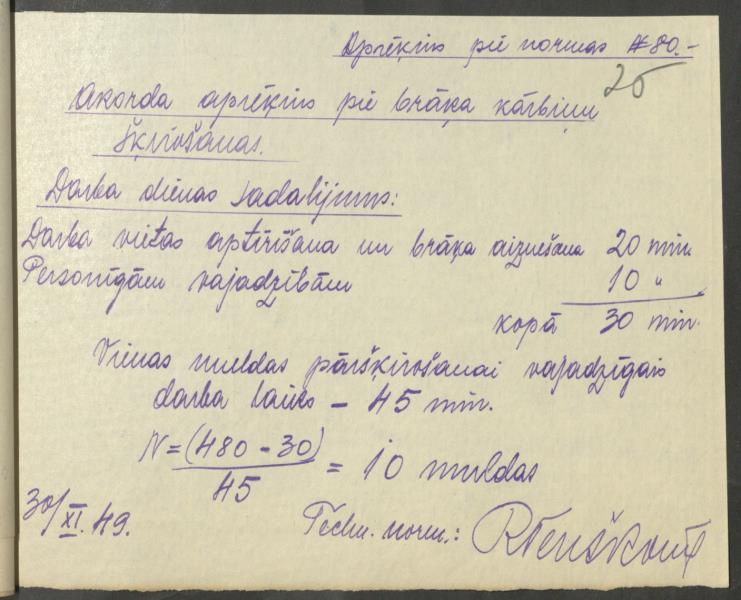 Aprēķins pie normas #80.-
25
Akorda aprēķins pie brāķa kārbiņu
šķirošanas.
Darba dienas sadalijums:
Darba vietas aptīrīšana un brāķa aiznešana 20 min.
Personīgām vajadzībām 10 "
kopā 30 min.
Vienas muldas pāršķirošanai vajadzīgais
darba laiks – 45 min.
N = (480 - 30)
45
= 10 muldas
30/XI.49.
Techn. norm.: